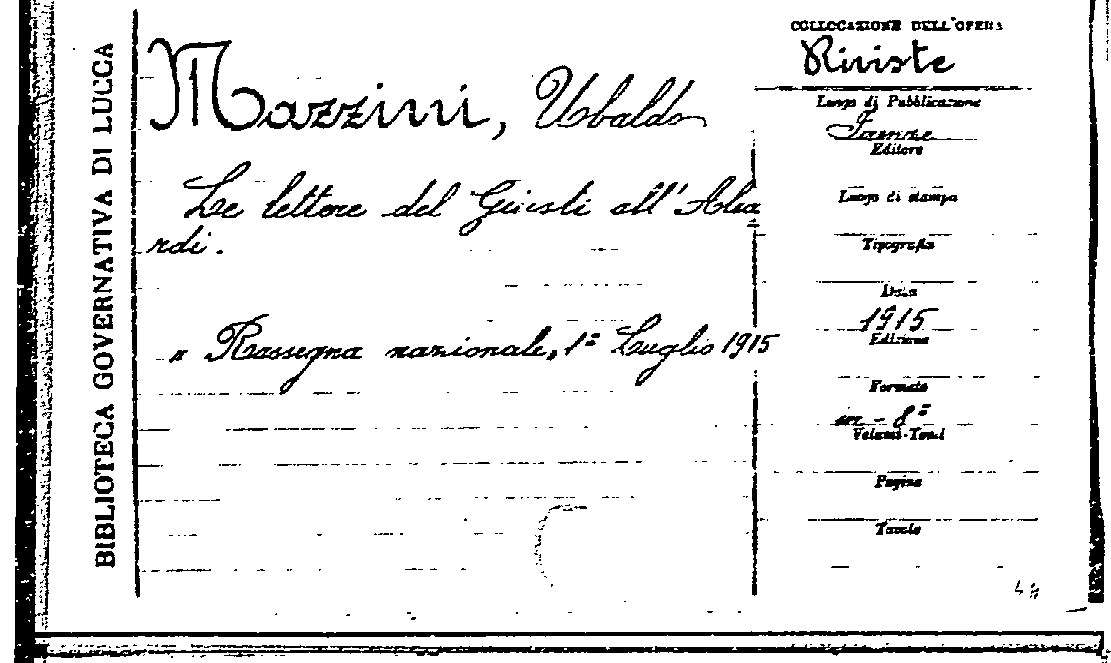 BIBLIOTECA GOVERNATIVA DI LUCCA
Mazzini, Ubaldo
Le lettere del Giusti all'Alea
rdi.
" Rassegna nazionale, 1º Luglio 1915
COLLOCAZIONE DELL'OPERA
Riviste
Luogo di Pubblicazione
Firenze
Editore
Luogo di stampa
Tipografia
Data
1915
Edizione
Formato
in-8º
Volumi-Tomi
Pagine
Tavole